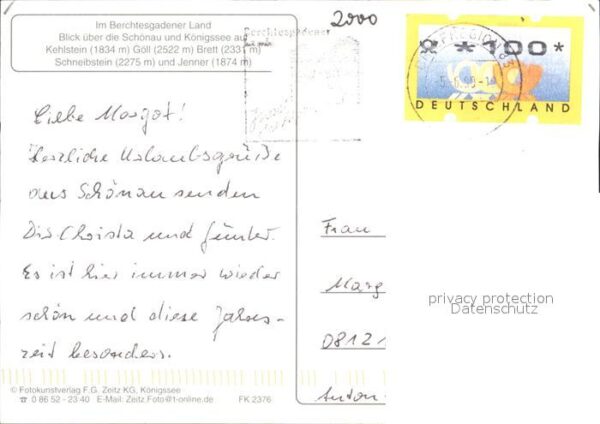 Im Berchtesgadener Land
Blick über die Schönau und Königssee auf
Kehlstein (1834 m) Göll (2522 m) Brett (2331 m)
Schneibstein (2275 m) und Jenner (1874 m)
2000
Berchtesgadener
* *100*
DEUTSCHLAND
Liebe Margot!
Herzliche Urlaubsgrüße
aus Schönau senden
Dir Christa und Günter.
Es ist hier immer wieder
schön und diese Jahres-
zeit besonders.
Frau
Marg
0812
Anton
privacy protection
Datenschutz
© Fotokunstverlag F.G. Zeitz KG, Königssee
☎ 0 86 52 - 23 40 E-Mail: Zeitz.Foto@t-online.de FK 2376